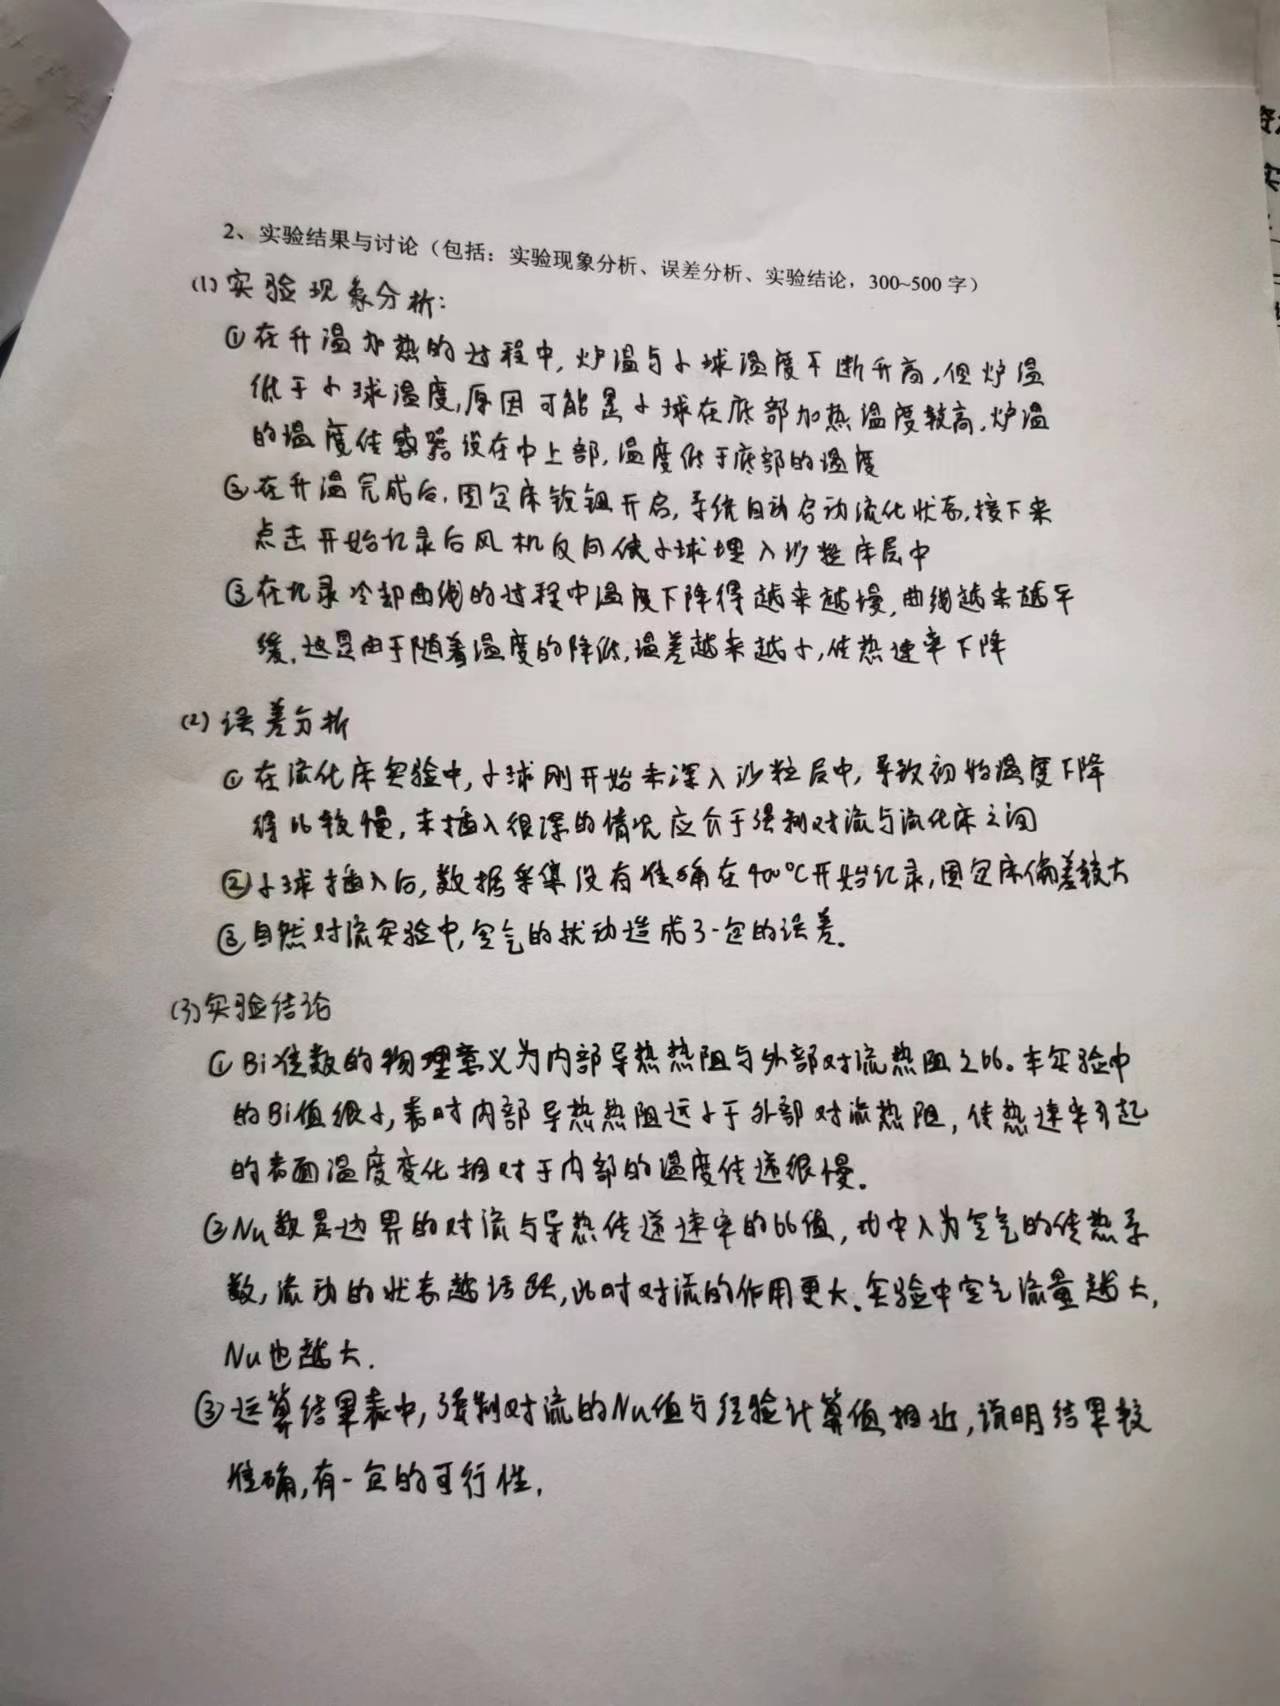 2、实验结果与讨论（包括：实验现象分析、误差分析、实验结论，300~500 字）
(1) 实验现象分析：
①在升温加热的过程中，炉温与小球温度不断升高，但炉温
低于小球温度，原因可能是小球在底部加热温度较高，炉温
的温度传感器设在中上部，温度低于底部的温度
②在升温完成后，固定床按钮开启，系统自动启动流化状态，接下来
点击开始记录后风机反向使小球埋入沙粒床层中
③在记录冷却曲线的过程中温度下降得越来越慢，曲线越来越平
缓，这是由于随着温度的降低，温差越来越小，传热速率下降
(2) 误差分析
①在流化床实验中，小球刚开始未深入沙粒层中，导致初始温度下降
得比较慢，未插入很深的情况应介于强制对流与流化床之间
②小球插入后，数据采集没有准确在400℃开始记录，固定床偏差较大
③自然对流实验中，空气的扰动造成了一定的误差。
(3) 实验结论
①Bi准数的物理意义为内部导热热阻与外部对流热阻之比。本实验中
的Bi值很小，表时内部导热热阻远小于外部对流热阻，传热速率引起
的表面温度变化相对于内部的温度传递很慢。
②Nu数是边界的对流与导热传递速率的比值，式中λ为空气的传热系
数，流动的状态越活跃，此时对流的作用更大。实验中空气流量越大，
Nu也越大.
③运算结果表中，强制对流的Nu值与经验计算值相近，说明结果较
准确，有一定的可行性.